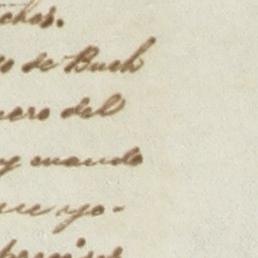 chos.
o de Buch
nero del
y mando
ue yo-